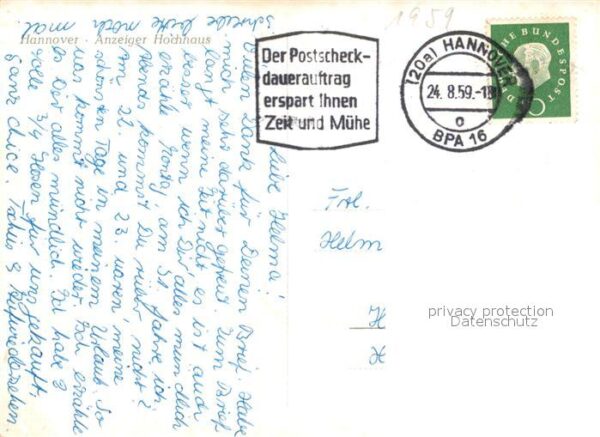 1959
Hannover · Anzeiger Hochhaus
Der Postscheck-
dauerauftrag
erspart Ihnen
Zeit und Mühe
(20a) HANNOVER
24.8.59.-18
c
BPA 16
DEUTSCHE BUNDESPOST
10
Liebe Helma!
Vielen Dank für Deinen Brief. Habe
mich sehr darüber gefreut. Zum Brief
langt meine Zeit nicht es ist auch
besser wenn ich Dir alles mündlich
erzähle Montag, am 31. fahre ich,
abends kommst Du rüber, nicht?
Am 22. und 23. waren, meine
schönsten Tage in meinem Urlaub. So
was kommt nicht wieder. Ich erzähle
es Dir alles mündlich. Del habe 2
tolle 3/4 Hosen für uns gekauft,
ganz chice. Tschüs & Aufwiedersehen.
schreibe bitte noch
mal
Frl.
Helm
H
H
privacy protection
Datenschutz